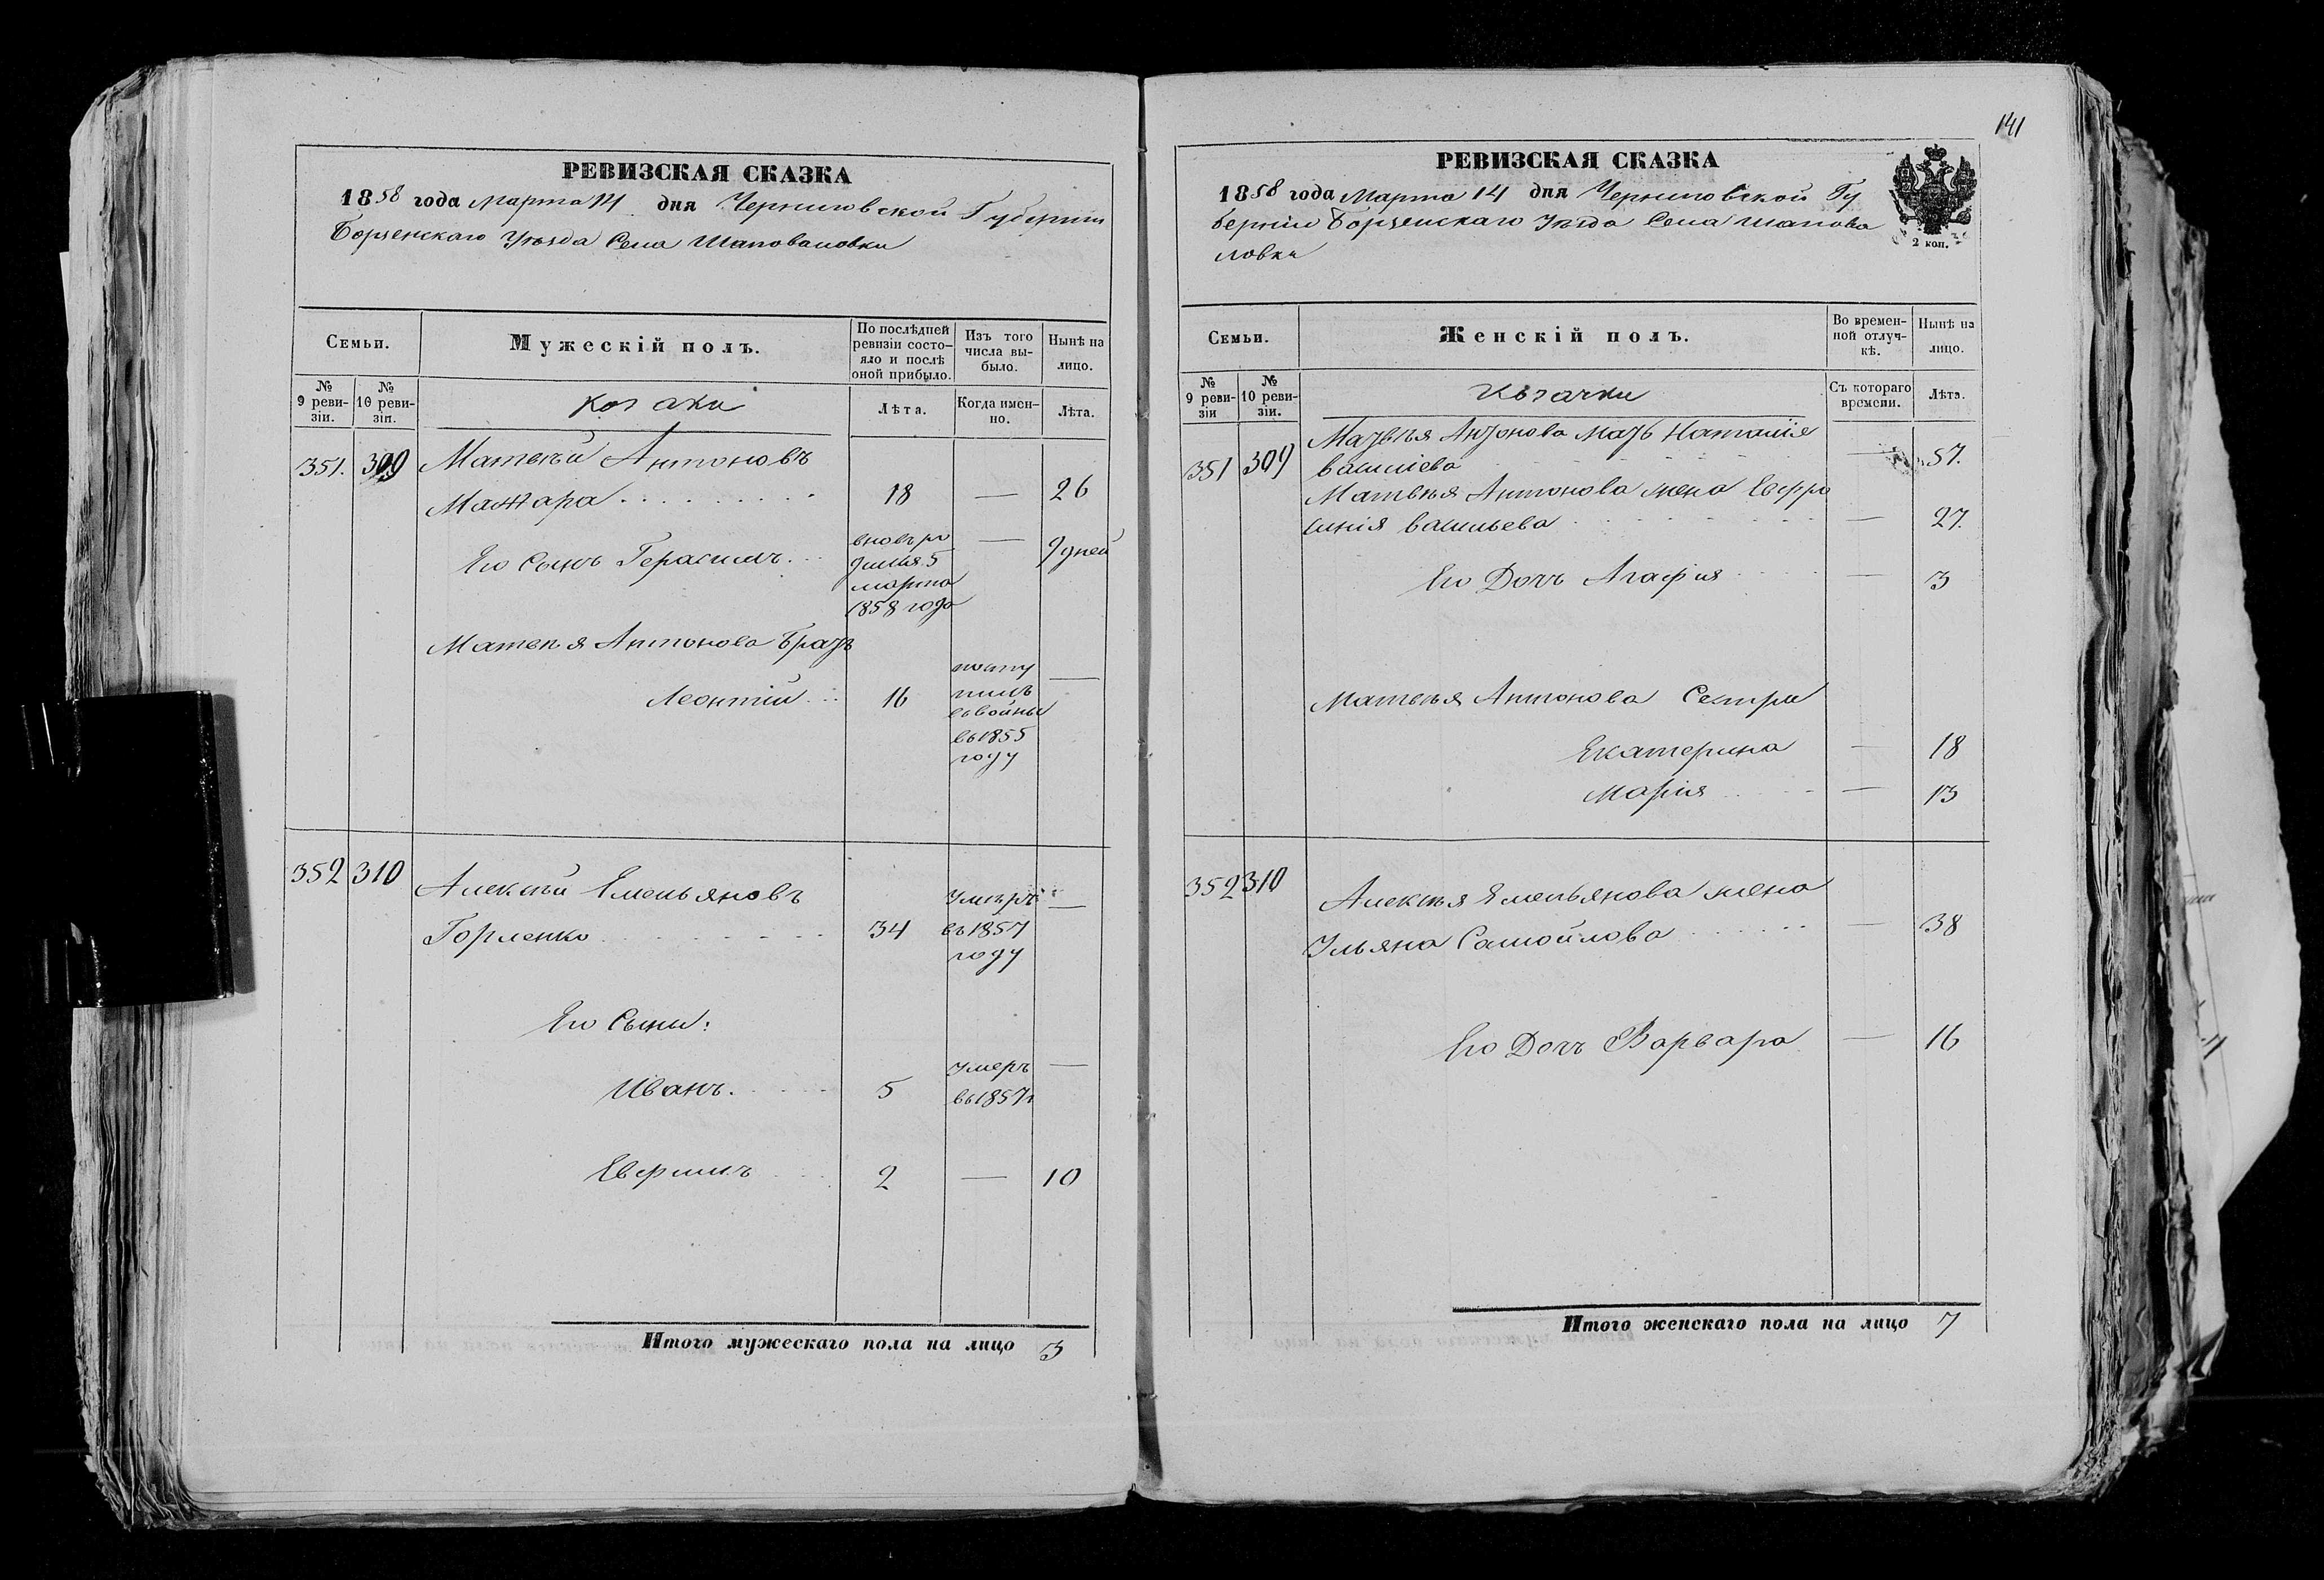 РЕВИЗСКАЯ СКАЗКА
1858 года Марта 14 дня Черниговской Губернии
Борзенскаго Уѣзда Села Шаповаловки
Семьи.
Мужескій полъ.
По послѣдней ревизіи состо-
яло и послѣ
оной прибыло.
Изъ того
числа вы-
было.
Нынѣ на
лицо.
№
9 реви-
зіи.
№
10 реви-
зіи.
козаки
Лѣта.
Когда имен-
но.
Лѣта.
351. 309 Матвѣй Антоновъ
Мажара 18 — 26
Его Сынъ Герасимъ вновь ро
дился 5
марта
1858 года
— 9 дней
Матвѣя Антонова Братъ
Леонтій 16
посту
пилъ
въ войны
въ 1855
году
—
352 310 Алексѣй Емельяновъ
Горленко 34
Умеръ
въ 1857
году
—
Его Сыны:
Иванъ. 5
Умеръ
въ 1857 г
—
Евфимъ 2 — 10
Итого мужескаго пола на лицо 3
141
РЕВИЗСКАЯ СКАЗКА
1858 года Марта 14 дня Черниговской Гу
берніи Борзенскаго Уѣзда Села Шапова
ловки
2 коп.
Семьи.
Женскій полъ.
Во времен-
ной отлуч-
кѣ.
Нынѣ на
лицо.
№
9 реви-
зіи
№
10 реви-
зіи.
Козачки
Съ котораго
времени.
Лѣта.
351 309 Матвѣя Антонова Мать Наталія
Василіева — 57.
Матвѣя Антонова жена Евфро
синія Васильева — 27.
Его Дочь Агафія — 3
Матвѣя Антонова Сестри
Екатерина — 18
Марія — 13
352 310 Алексѣя Емельянова жена
Ульяна Самойлова — 38
Его Дочь Варвара — 16
Итого женскаго пола на лицо 7